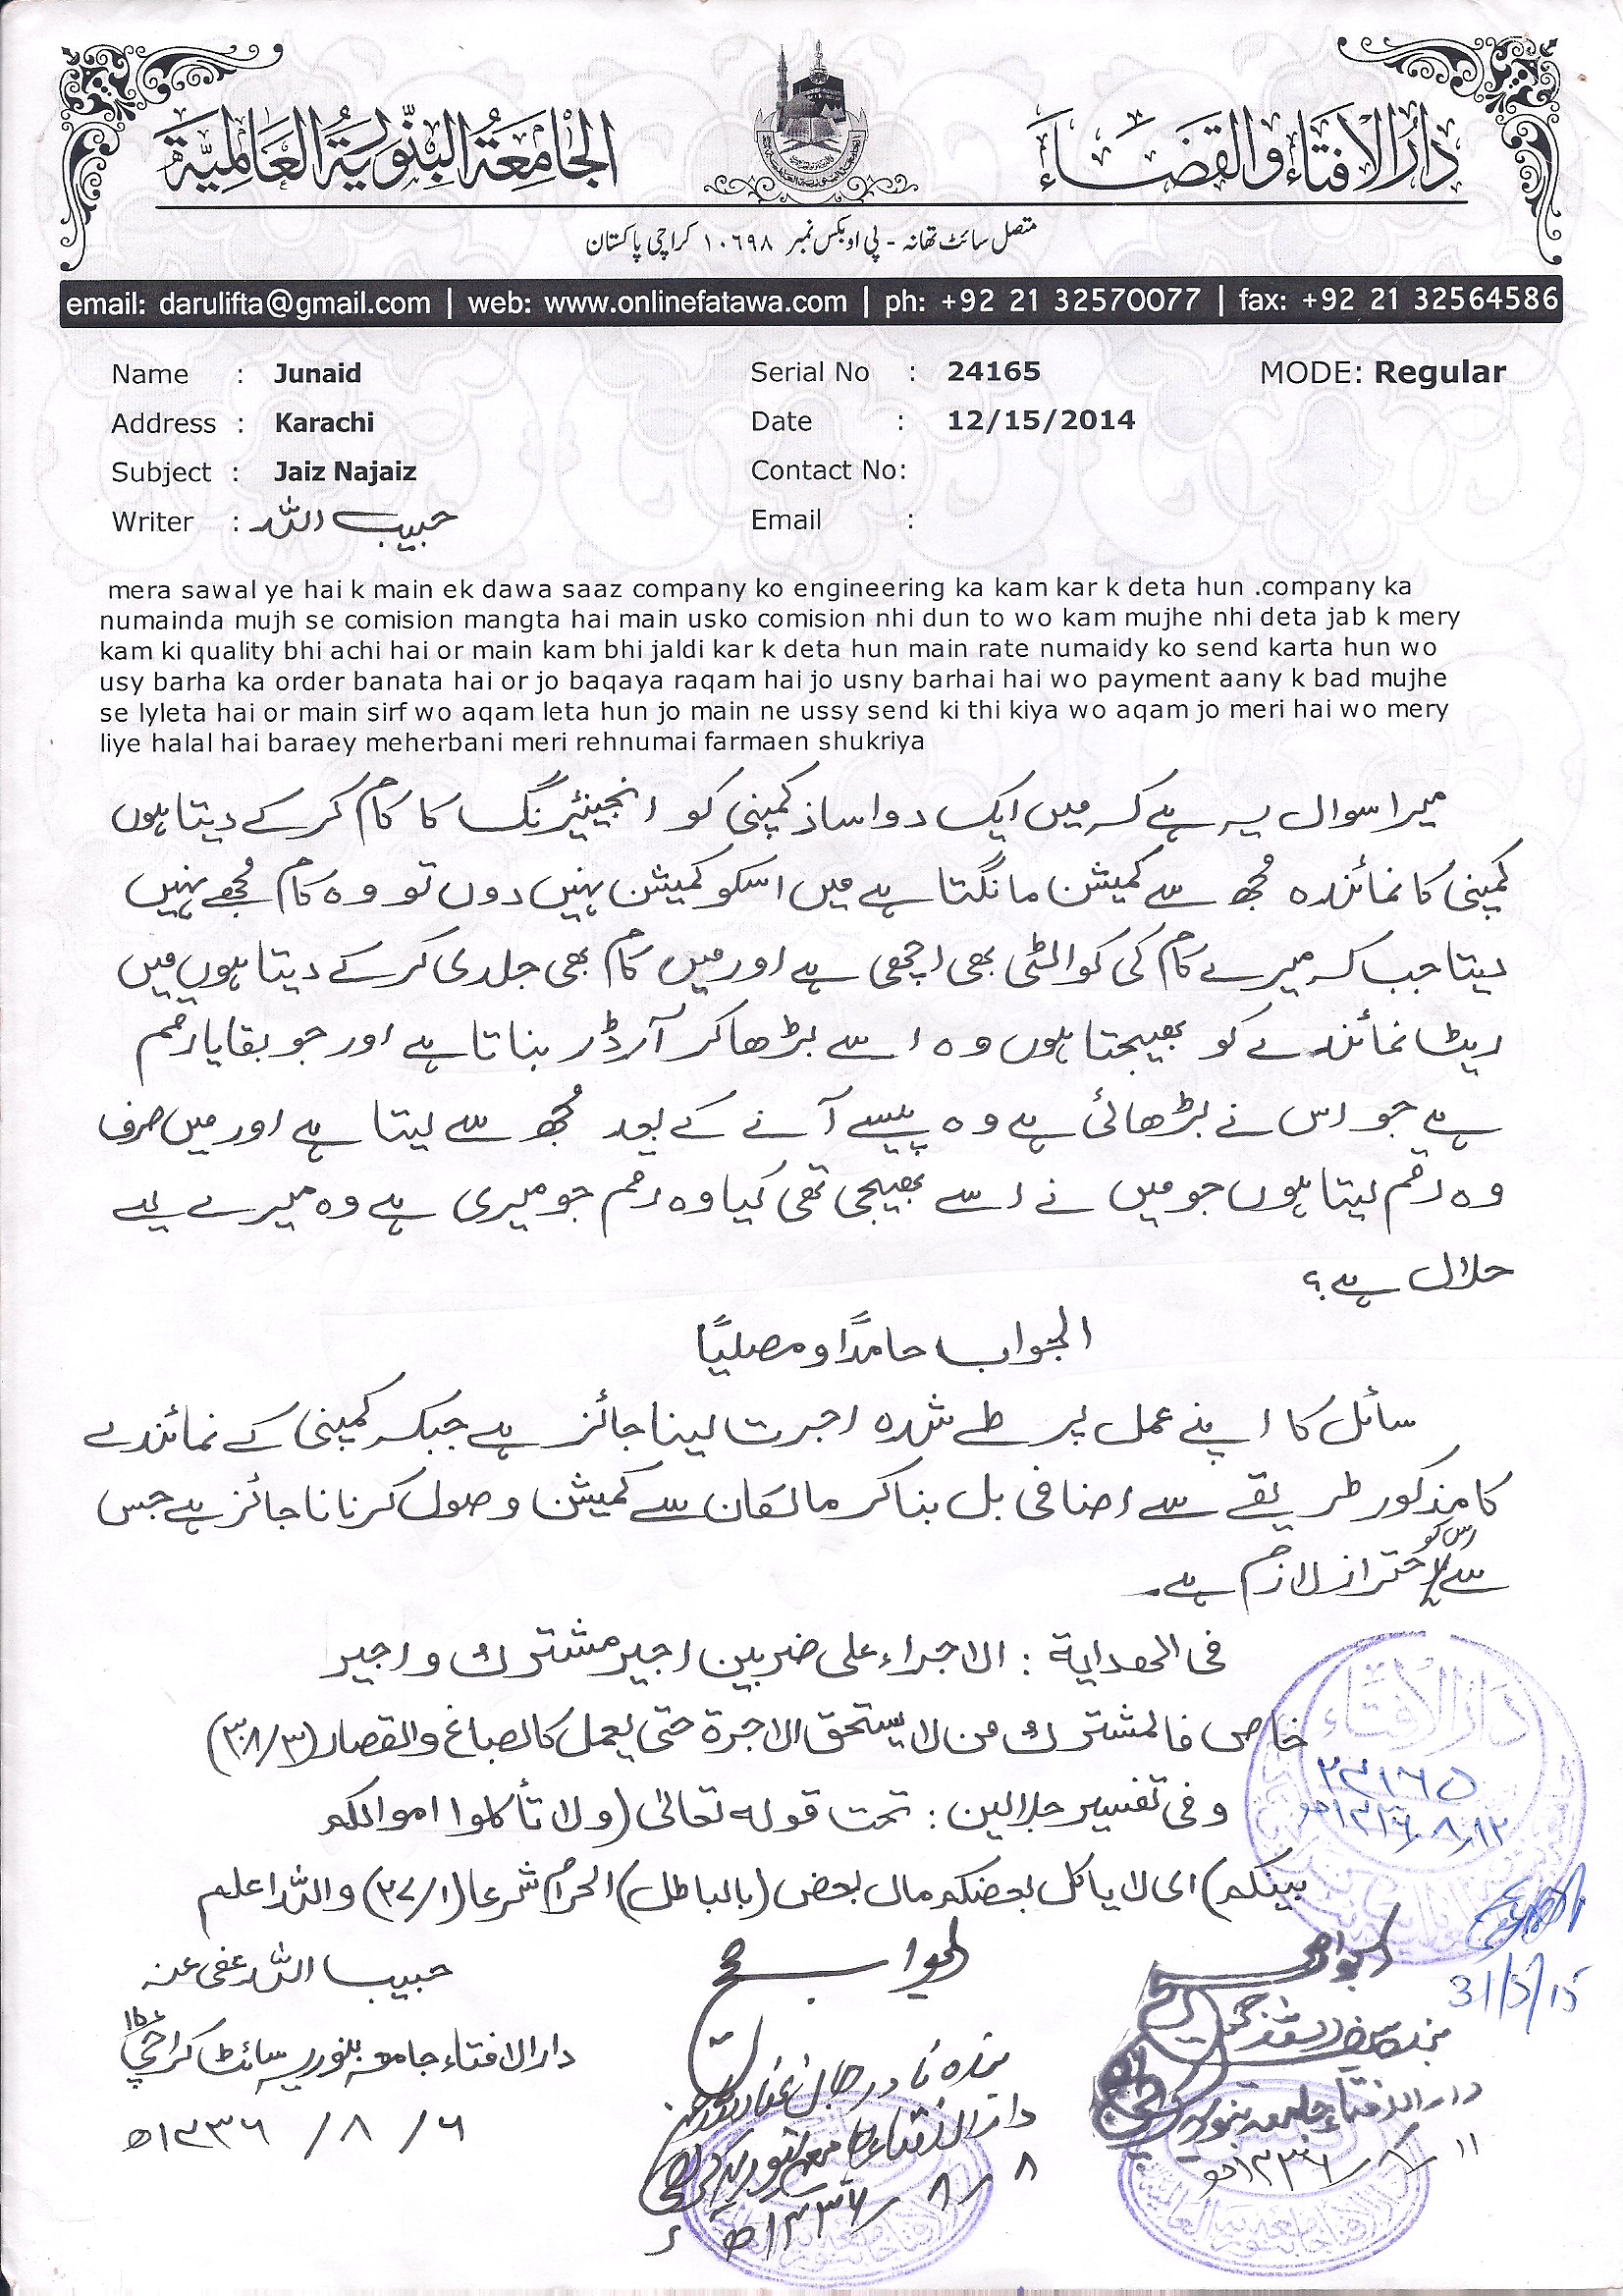 دارُالافتاء والقضاء
الجامعۃ البنّوریۃ العالمیۃ
متصل سائٹ تھانہ - پی او بکس نمبر ۱۰۶۹۸ کراچی پاکستان
email: darulifta@gmail.com | web: www.onlinefatawa.com | ph: +92 21 32570077 | fax: +92 21 32564586
Name : Junaid Serial No : 24165 MODE: Regular
Address : Karachi Date : 12/15/2014
Subject : Jaiz Najaiz Contact No:
Writer : حبیب اللہ Email :
mera sawal ye hai k main ek dawa saaz company ko engineering ka kam kar k deta hun .company ka
numainda mujh se comision mangta hai main usko comision nhi dun to wo kam mujhe nhi deta jab k mery
kam ki quality bhi achi hai or main kam bhi jaldi kar k deta hun main rate numaidy ko send karta hun wo
usy barha ka order banata hai or jo baqaya raqam hai jo usny barhai hai wo payment aany k bad mujhe
se lyleta hai or main sirf wo aqam leta hun jo main ne ussy send ki thi kiya wo aqam jo meri hai wo mery
liye halal hai baraey meherbani meri rehnumai farmaen shukriya
میرا سوال یہ ہے کہ میں ایک دوا ساز کمپنی کو انجینئیرنگ کا کام کر کے دیتا ہوں
کمپنی کا نمائندہ مُجھ سے کمیشن مانگتا ہے میں اسکو کمیشن نہیں دوں تو وہ کام مُجھے نہیں
دیتا جب کہ میرے کام کی کوالٹی بھی اچھی ہے اور میں کام بھی جلدی کر کے دیتا ہوں میں
ریٹ نمائندے کو بھیجتا ہوں وہ اسے بڑھا کر آرڈر بناتا ہے اور جو بقایا رقم
ہے جو اس نے بڑھائی ہے وہ پیسے آنے کے بعد مُجھ سے لیتا ہے اور میں صرف
وہ رقم لیتا ہوں جو میں نے اسے بھیجی تھی کیا وہ رقم جو میری ہے وہ میرے لیے
حلال ہے؟
الجواب حامدًا و مصلیًا
سائل کا اپنے عمل پر طے شدہ اجرت لینا جائز ہے جبکہ کمپنی کے نمائندے
کا مذکور طریقے سے اضافی بل بنا کر مالکان سے کمیشن وصول کرنا ناجائز ہے جس
سے اس کو احتراز لازم ہے۔
فی الھدایۃ : الاجراء علی ضربین اجیر مشترک و اجیر
خاص فالمشترک من لا یستحق الاجرة حتی یعمل کالصباغ والقصار (۳۰۸/۳)
و فی تفسیر جلالین : تحت قولہ تعالیٰ (ولا تأکلوا اموالکم
بینکم) ای لا یاکل بعضکم مال بعض (بالباطل) الحرام شرعا (۲۷/۱) واللہ اعلم
دار الافتاء
۲۴۱۶۵
۱۲/۸/۱۴۳۶ھ
31/5/15
حبیب اللہ عفی عنہ
دارالافتاء جامعہ بنوریہ سائٹ کراچی
۶ / ۸ / ۱۴۳۶ھ
الجواب صحیح
بندہ نادر جان
دارالافتاء جامعہ بنوریہ کراچی
۸ / ۸ / ۱۴۳۶ھ
الجواب صحیح
دارالافتاء جامعہ بنوریہ
۱۱ / ۸ / ۱۴۳۶ھ